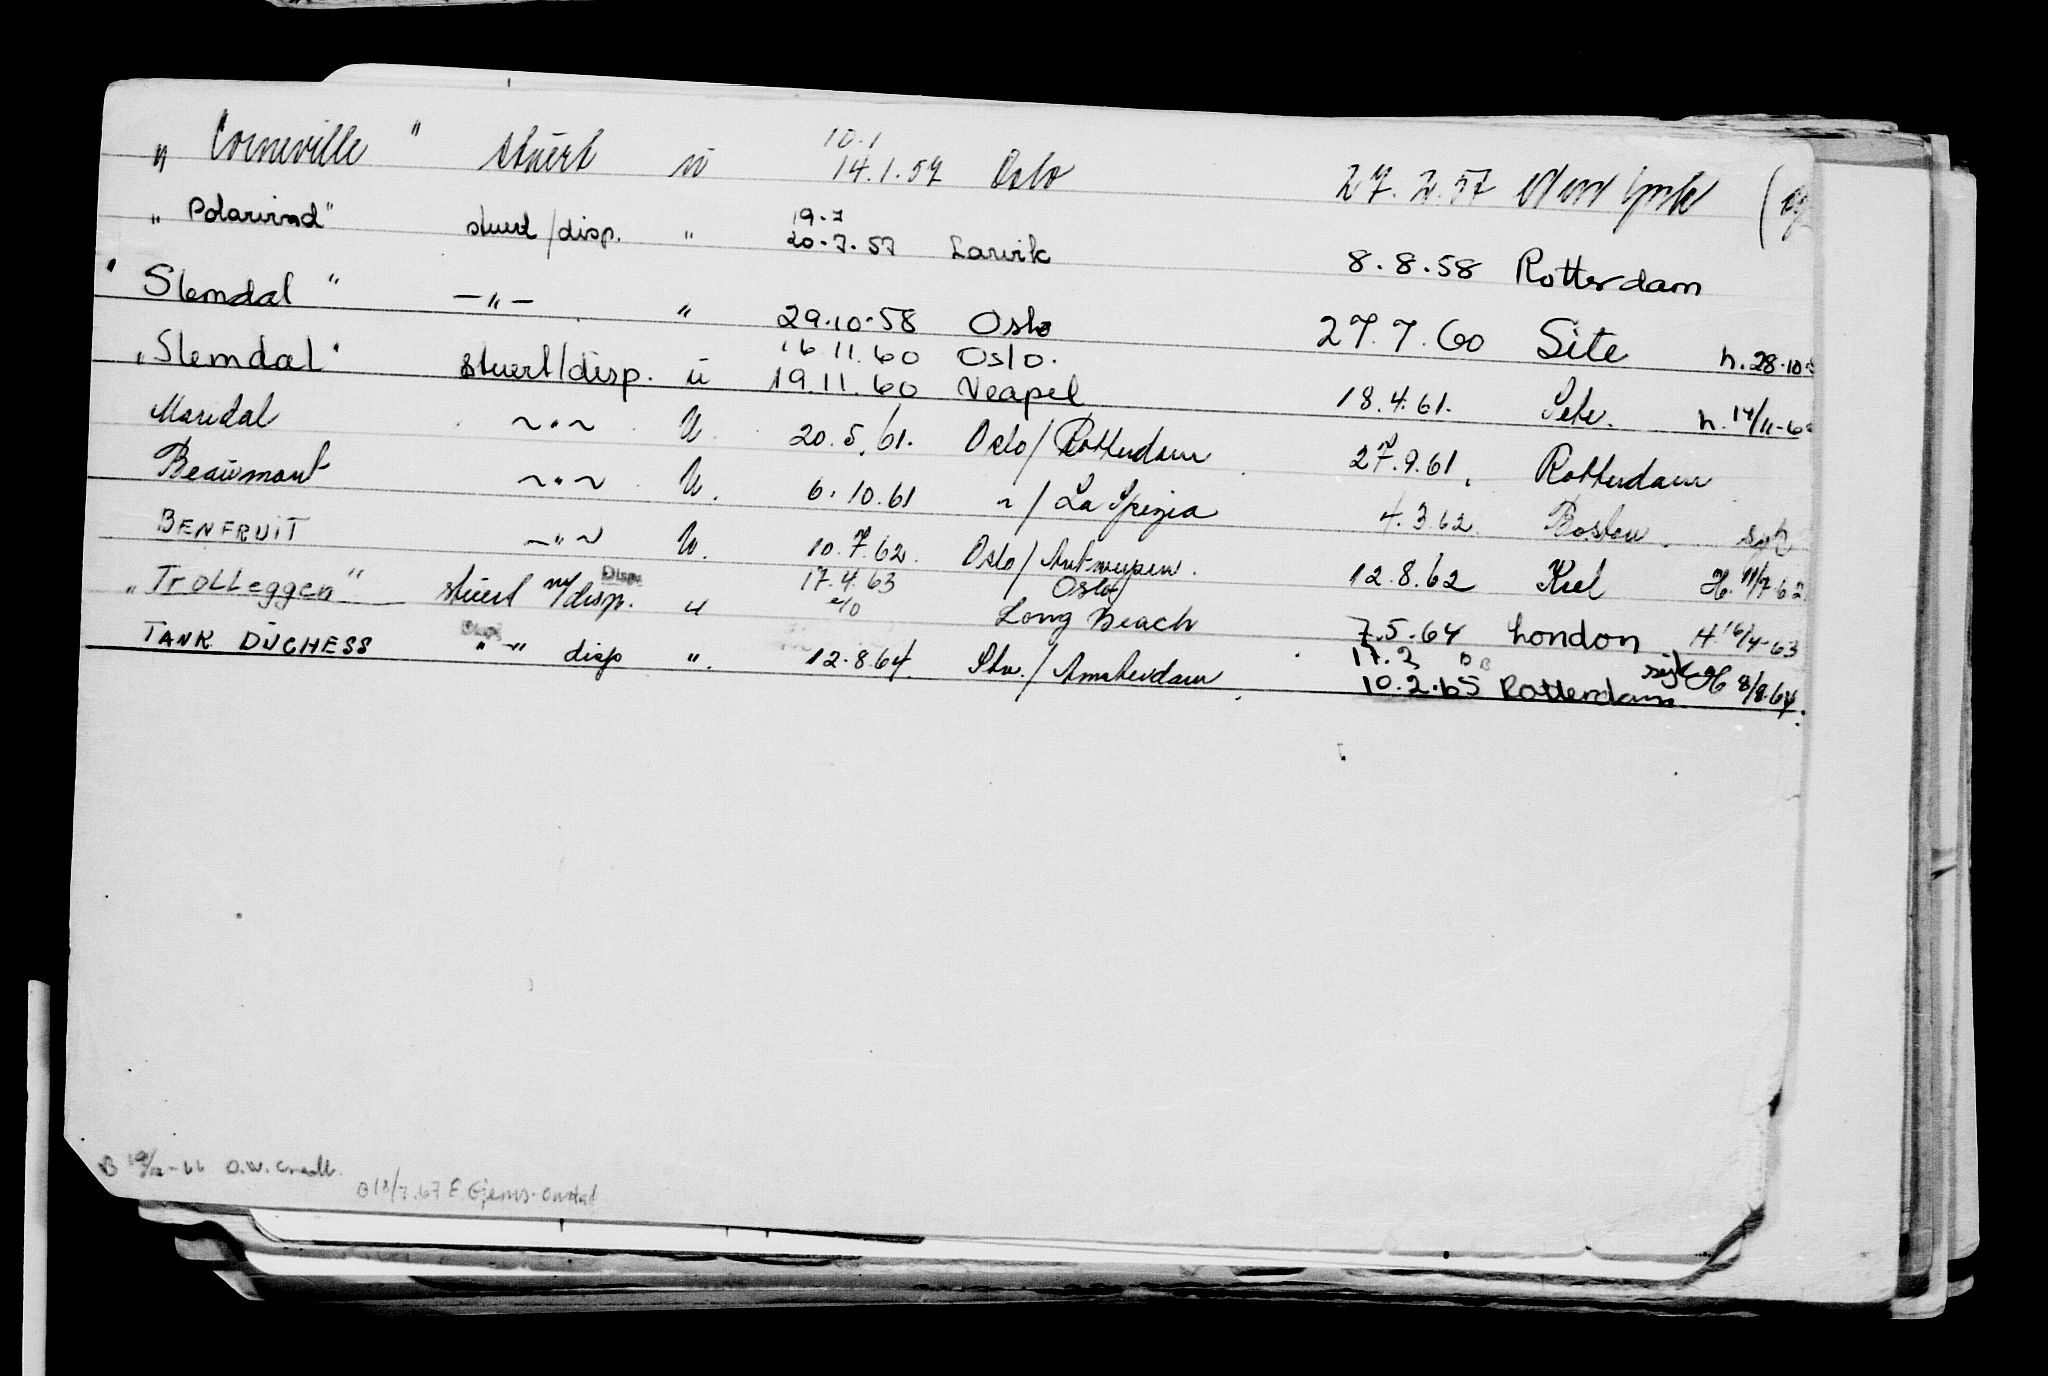 „ Corneville " stuert u 10.1 14.1.57 Oslo 27.2.57 New York
„ Polarvind" stuert/disp. " 19-7 20-7-57 Larvik 8.8.58 Rotterdam
" Slemdal " —"— " 29.10-58 Oslo 27.7.60 Site h. 28-10-
„Slemdal" stuert/disp. u 16.11.60 Oslo. 19.11.60 Neapel 18.4.61. Sete. h. 14/11-60
Maridal ~"~ U. 20.5.61. Oslo/Rotterdam 27.9.61. Rotterdam
Beaumont ~"~ U. 6.10.61 ~/ La Spezia 4.3.62. Boston. syk
BENFRUIT —"~ U. 10.7.62. Oslo/Antwerpen. 12.8.62 Kiel H. 11/7-62.
„Trolleggen" stuert m/disp. Disp. u 17.4.63 Oslo/ Long Beach 7.5.64 London H. 16/4-63
TANK DUCHESS " –" disp ". 12.8.64. Stv./Amsterdam 17.2 10.2.65 Rotterdam syk H 8/8.64.
B O.W.
B 18/7.67 E. Gjems-Onstad